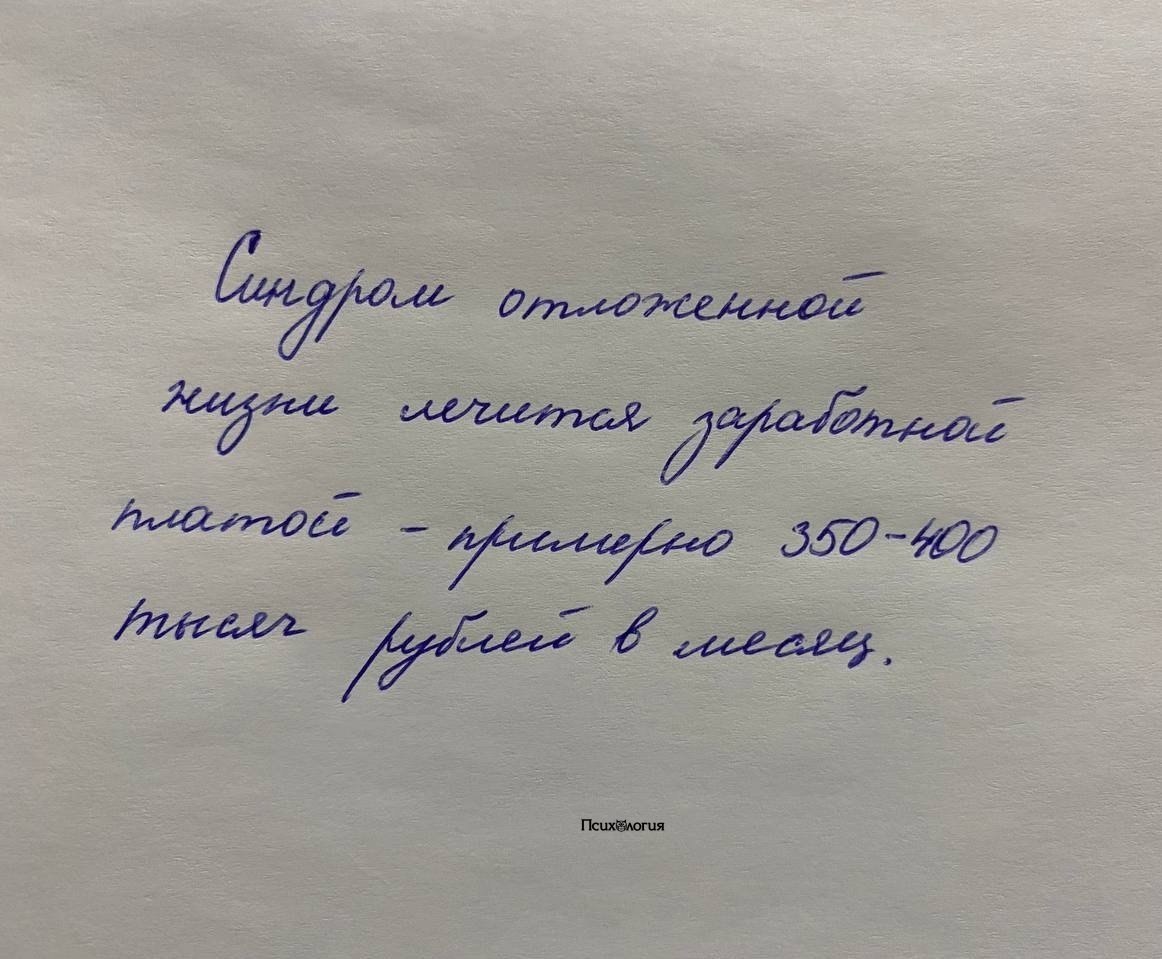 Синдром отложенной
жизни лечится заработной
платой - примерно 350-400
тысяч рублей в месяц.
Психология